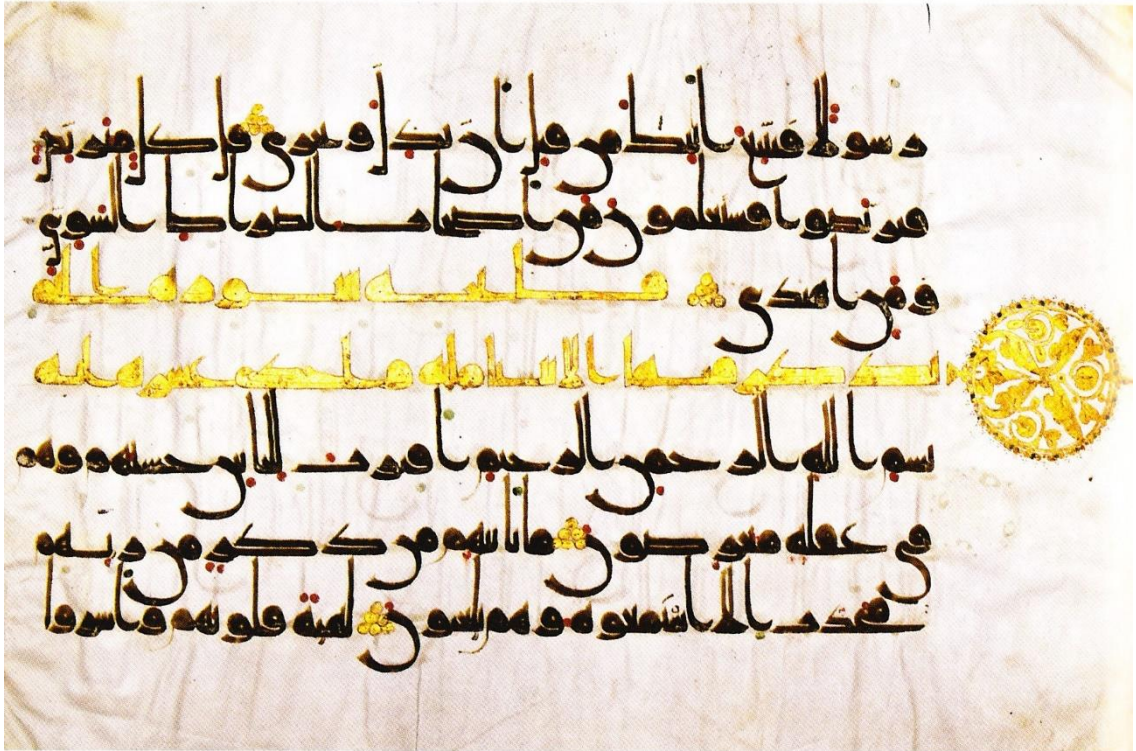 رسولا فنتبع ايتك من قبل ان نذل ونخزى قل كل متربص
فتربصوا فستعلمون من اصحاب الصراط السوي
ومن اهتدى فاتحة سورة مكية
يذكر فيها الانبيا
بسم الله الرحمن الرحيم اقترب للناس حسبهم وهم
في غفلة معرضون ما ياتيهم من ذكر من ربهم
محدث الا استمعوه وهم يلعبون لهية قلوبهم واسروا